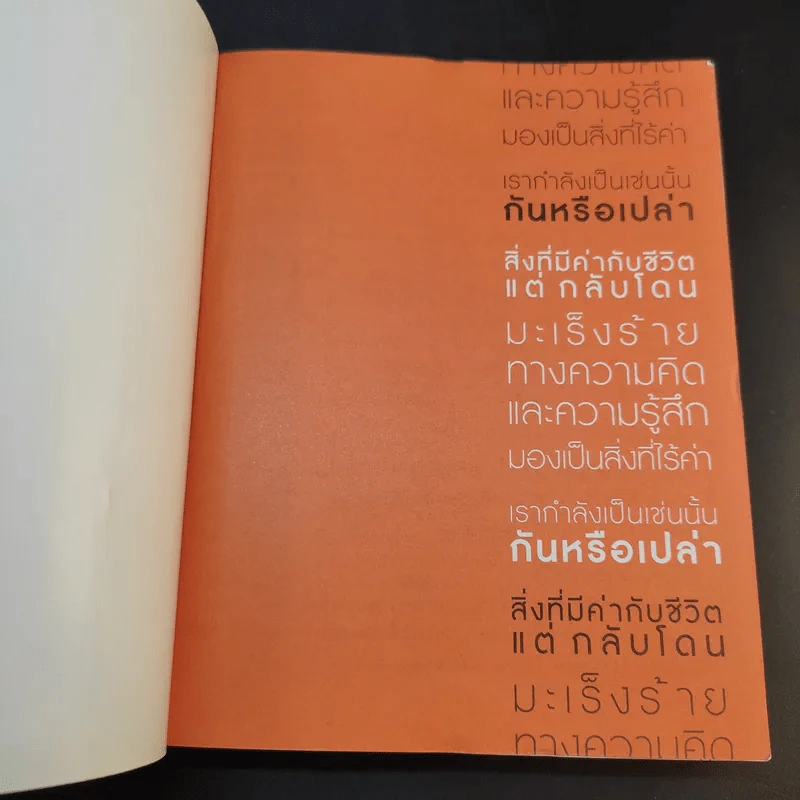 ทางความคิด
และความรู้สึก
มองเป็นสิ่งที่ไร้ค่า
เรากำลังเป็นเช่นนั้น
กันหรือเปล่า
สิ่งที่มีค่ากับชีวิต
แต่ กลับโดน
มะเร็งร้าย
ทางความคิด
และความรู้สึก
มองเป็นสิ่งที่ไร้ค่า
เรากำลังเป็นเช่นนั้น
กันหรือเปล่า
สิ่งที่มีค่ากับชีวิต
แต่ กลับโดน
มะเร็งร้าย
ทางความคิด